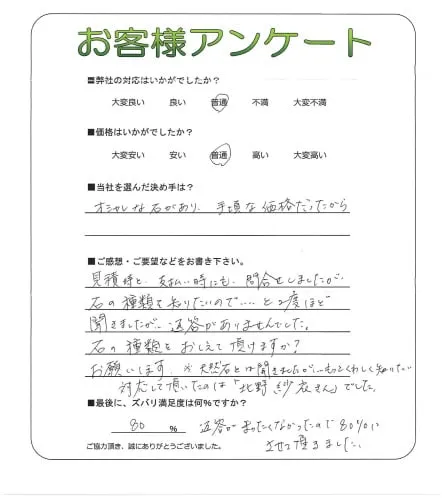 お客様アンケート
■弊社の対応はいかがでしたか?
大変良い 良い 普通 不満 大変不満
■価格はいかがでしたか?
大変安い 安い 普通 高い 大変高い
■当社を選んだ決め手は?
オシャレな石があり、手頃な価格だったから
■ご感想・ご要望などをお書き下さい。
見積時と、支払い時にも、問合せしましたが、
石の種類を知りたいので…と2度ほど
聞きましたが、返答がありませんでした。
石の種類をおしえて頂けますか?
お願いします。※天然石とは聞きましたが…もっとくわしく知りたい
対応して頂いたのは「北野紗衣さん」でした。
■最後に、ズバリ満足度は何%ですか?
80 % 返答がまったくなかったので80%に
させて頂きました。
ご協力頂き、誠にありがとうございました。